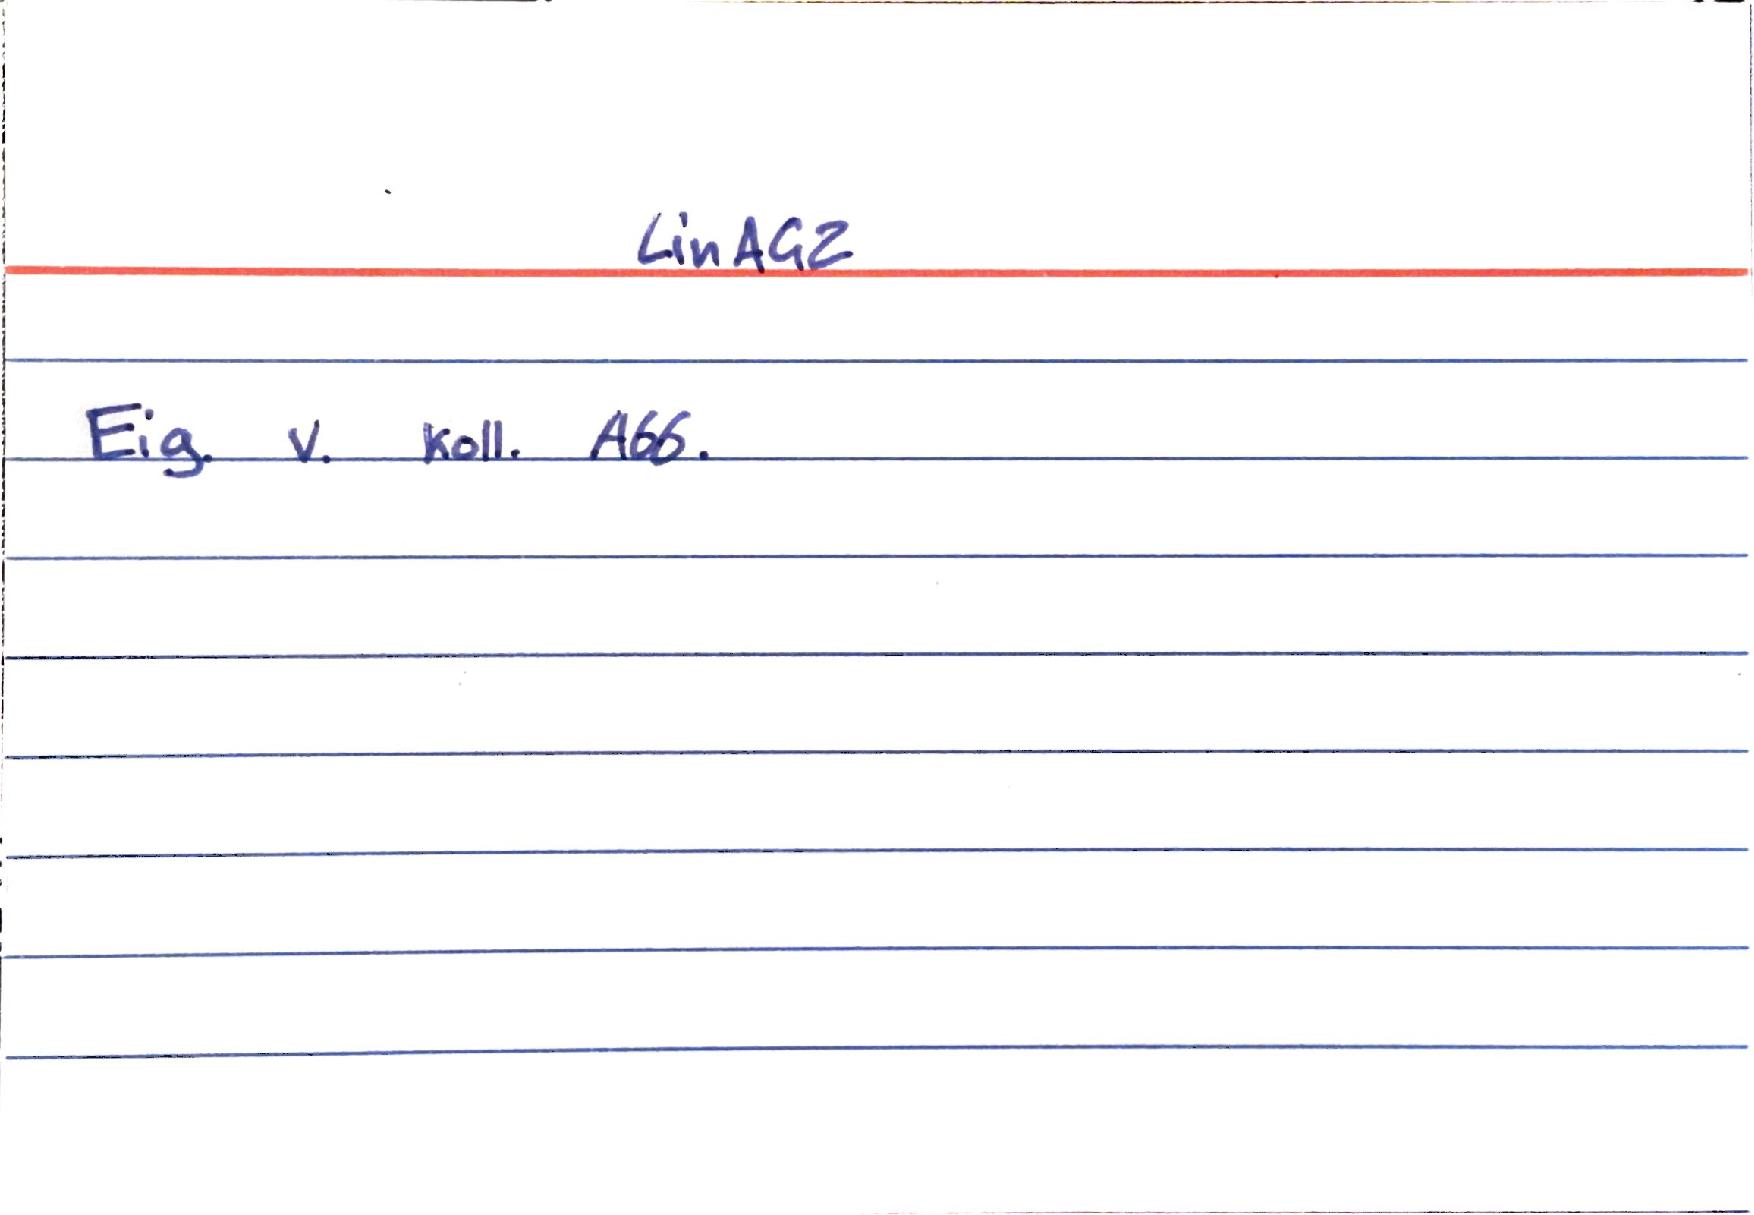 LinAG2
Eig. v. Koll. Abb.